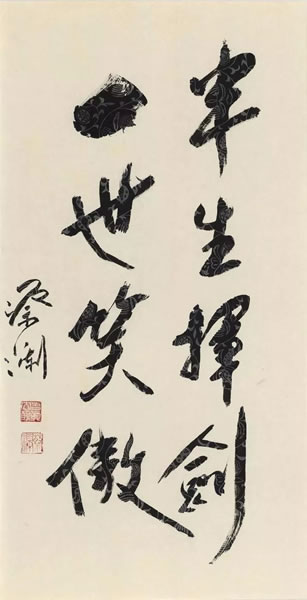 半生揮劍
一世笑傲
蔡瀾